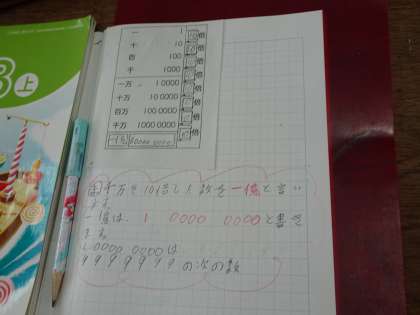 3上
一 1
十 10 10倍
百 100 10倍
千 1000 10倍
一万 1 0000 10倍
十万 10 0000 10倍
百万 100 0000 10倍
千万 1000 0000 10倍
一億
千万を10倍した数を一億と言い
ます。
一億は、1 0000 0000と書き
ます。
1 0000 0000は
99999999の次の数